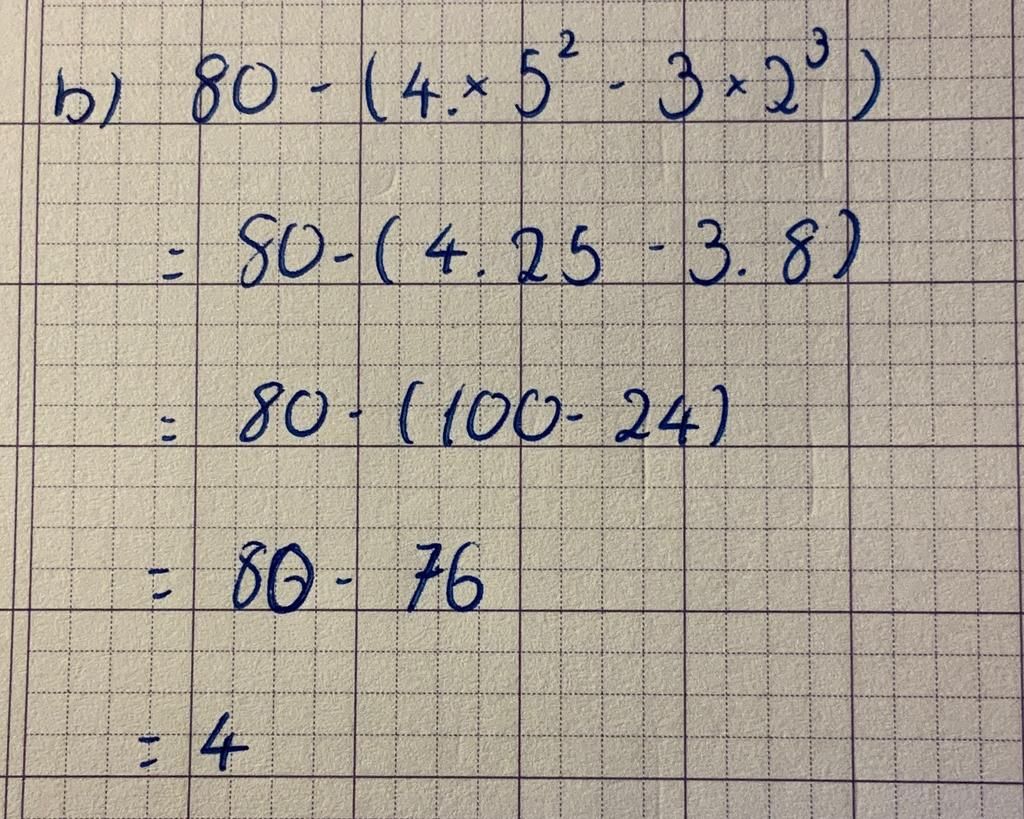 b) 80 - (4.× 5² - 3 × 2³)
= 80 - (4 . 25 - 3 . 8)
= 80 - (100 - 24)
= 80 - 76
= 4